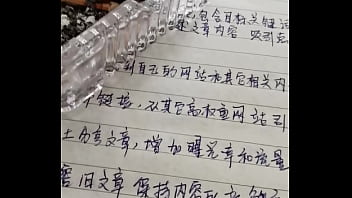 包含目标关键词
文章内容 吸引
到自己的网站和其它相关内
链接，从其它高权重网站到
上分享文章，增加曝光率和流量
旧文章 保持内容